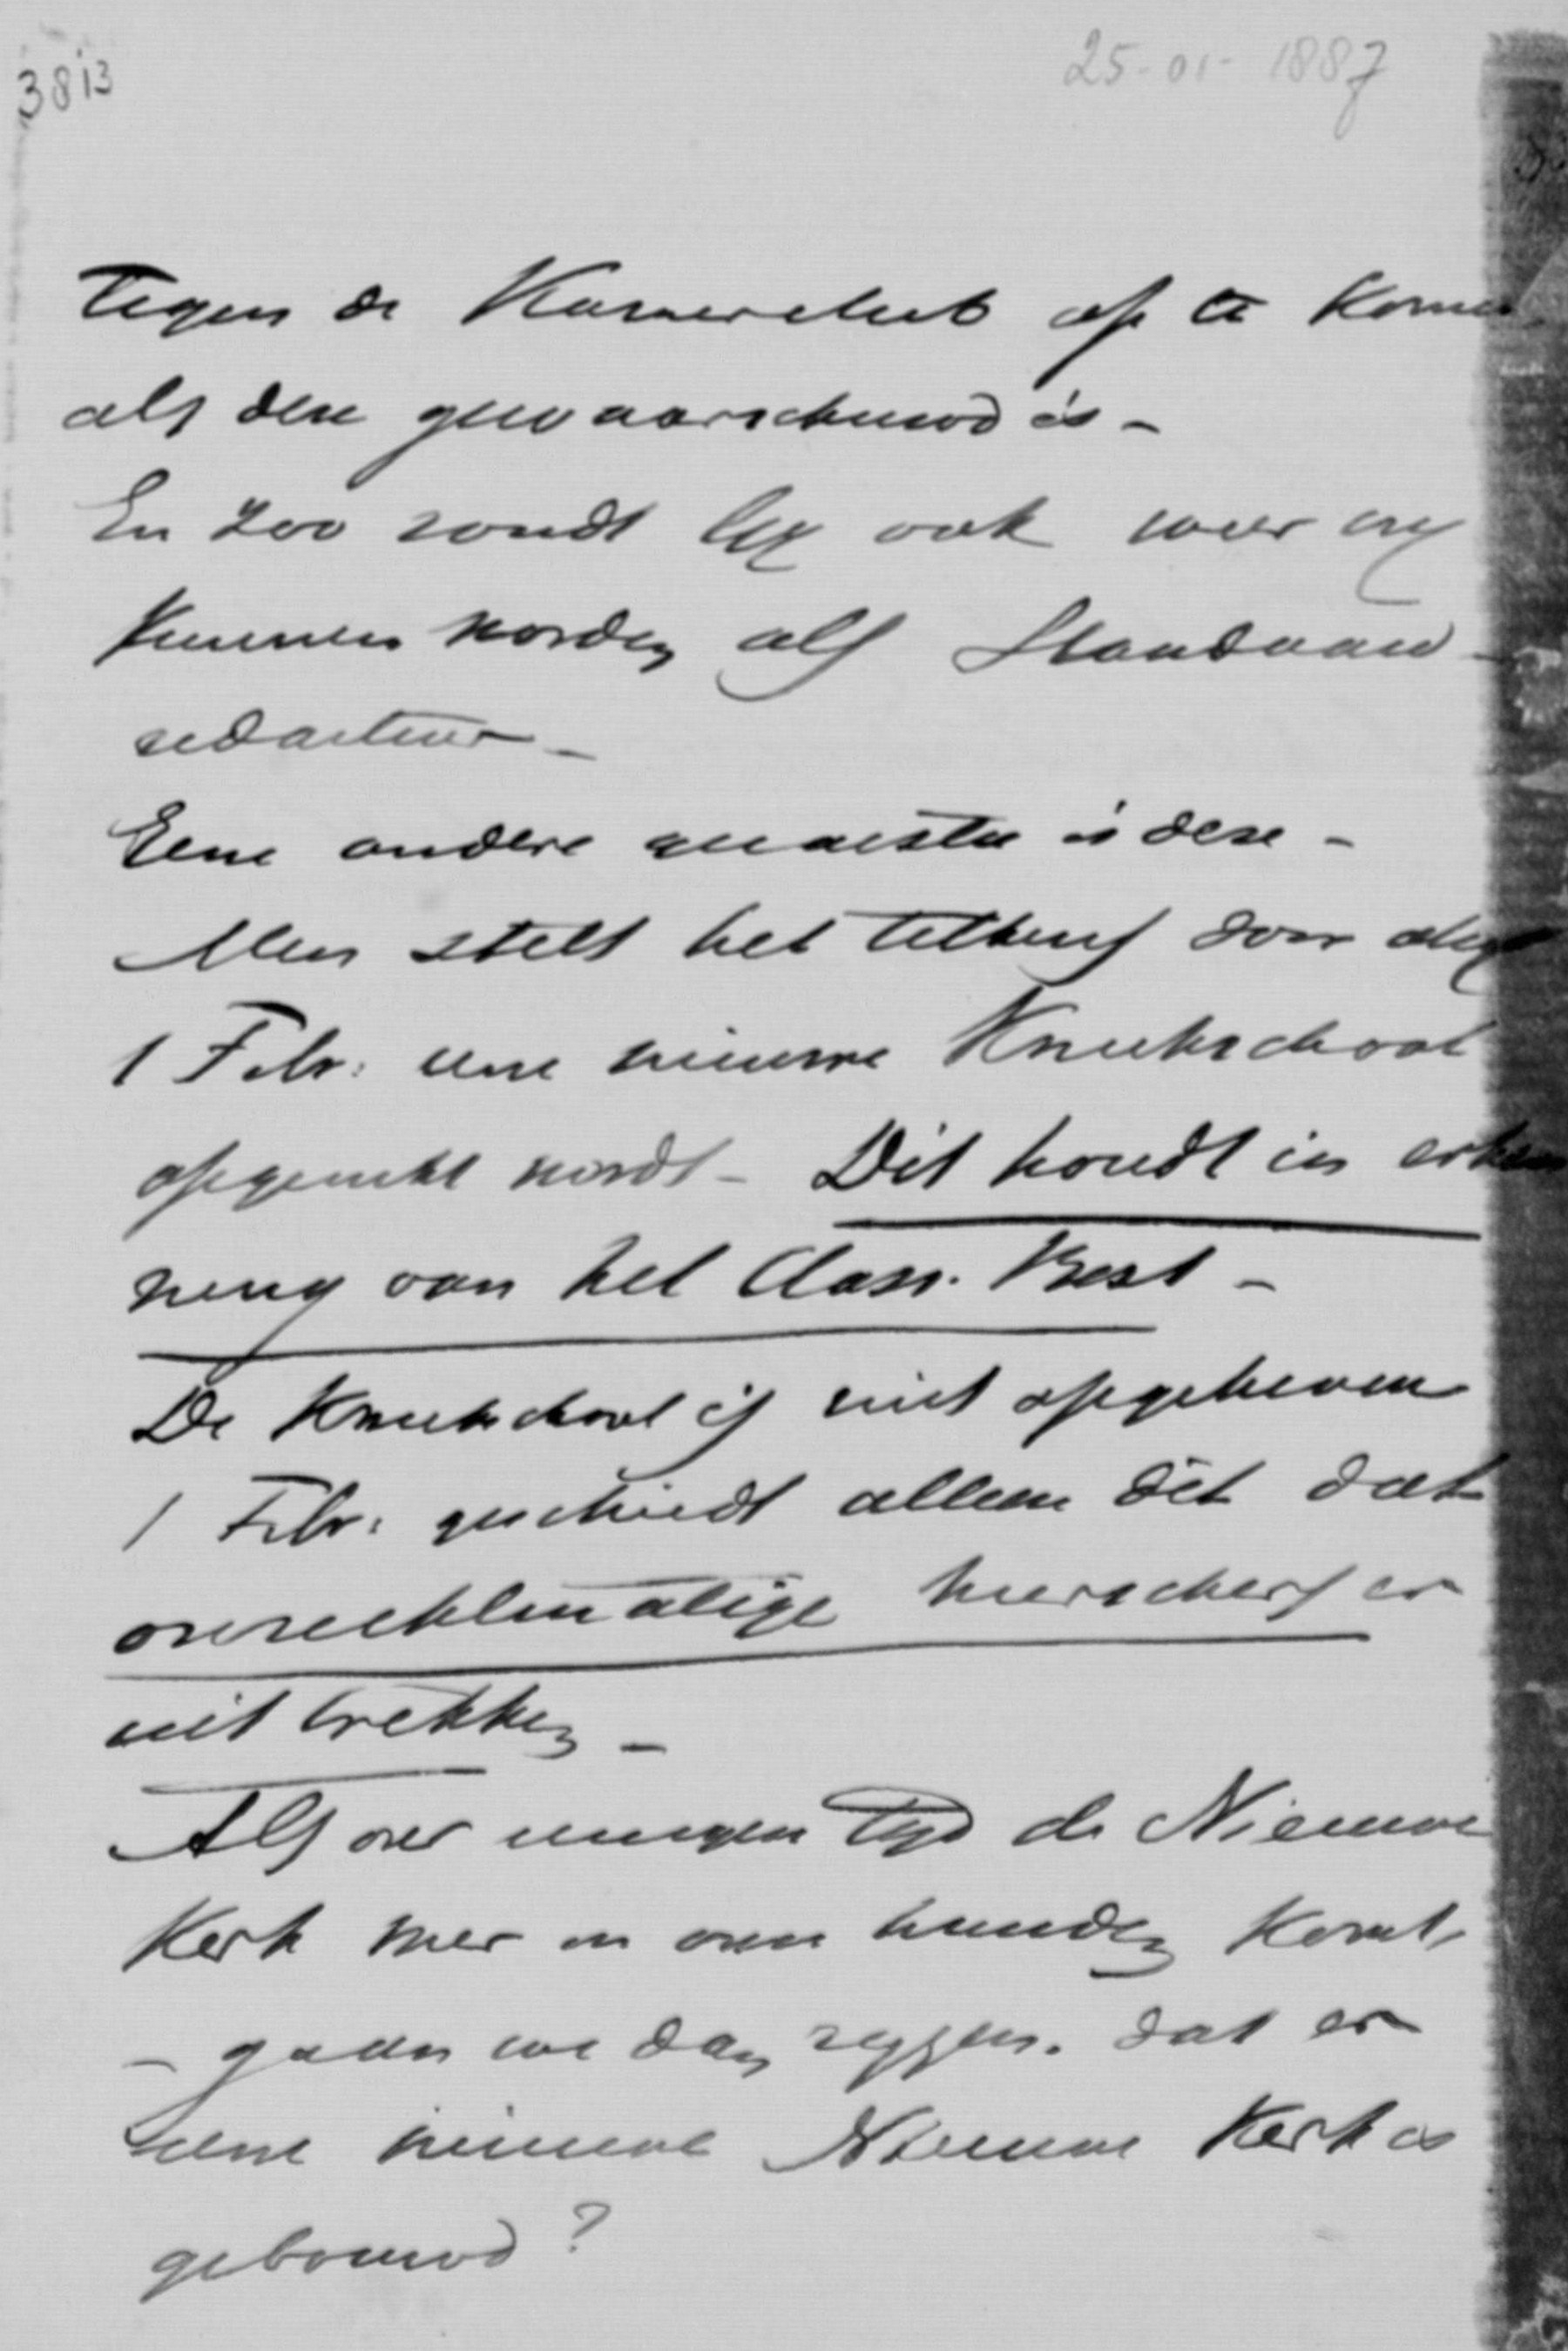 3813
25-01-1887
tegen de Kamerclub op te komen
als deze gewaarschuwd is -
En zoo zoudt Gij ook weer vrij
kunnen worden als Standaard-
redacteur -
Eene andere quaestie is deze -
Men stelt het telkens voor alsof
1 Febr: eene nieuwe Kweekschool
opgericht wordt - Dit houdt in erken
ning van het Class. Best -
De Kweekschool is niet opgeheven
1 Febr: geschiedt alleen dit dat
onrechtmatige heerschers er
uit trekken -
Als over eenigen tijd de Nieuwe
Kerk weer in onze handen komt,
- gaan we dan zeggen. dat er
eene nieuwe Nieuwe Kerk is
gebouwd?